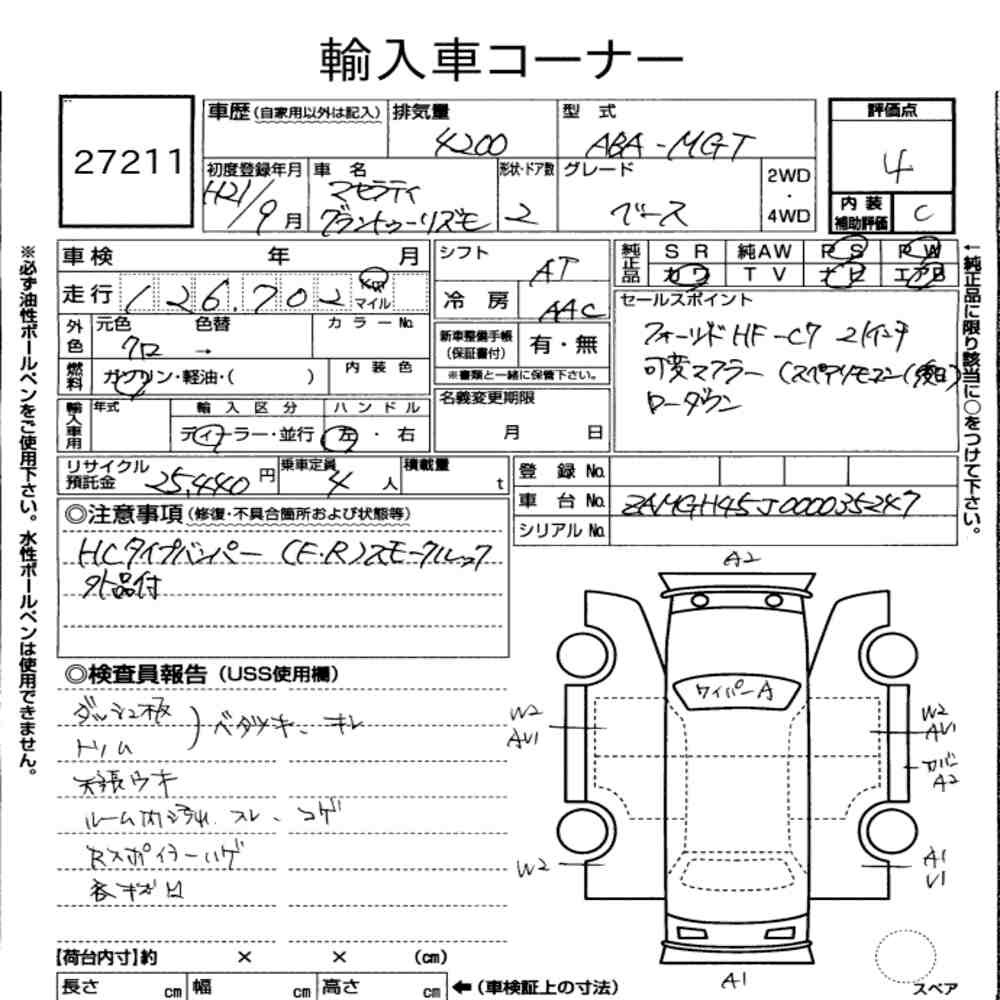 輸入車コーナー
27211
車歴(自家用以外は記入) 排気量 4200 型式 ABA-MGT 評価点 4
初度登録年月 H21/9月 車名 マセラティ グラントゥーリズモ 形状・ドア数 2 グレード ベース 2WD・4WD 内装補助評価 C
車検 年 月 シフト AT 純正品 SR 純AW PS PW
カワ TV ナビ エアB
走行 126,702 km マイル 冷房 AAC
外色 元色 クロ 色替 → カラーNo.
燃料 ガソリン・軽油・( ) 内装色
新車整備手帳(保証書付) 有・無
※書類と一緒に保管下さい。
セールスポイント
フォージド HF-C7 21インチ
可変マフラー (スペアリモコン(後日)
ローダウン
輸入車用 年式 輸入区分 ハンドル
ディーラー・並行 左・右
名義変更期限
月 日
リサイクル預託金 25,440円 乗車定員 4人 積載量 t
登録No.
車台No. ZAMGH45J000035247
シリアルNo.
◎注意事項(修復・不具合箇所および状態等)
HCタイプバンパー (F・R)スモークルック
外品付
◎検査員報告(USS使用欄)
ダッシュ板
トリム
ベタツキ、キレ
天張ウキ
ルーム内ヨゴレ スレ、コゲ
Rスポイラーハゲ
※必ず油性ボールペンをご使用下さい。水性ボールペンは使用できません。
←純正品に限り該当に○をつけて下さい。
A2
ワイパーA
W2
AV1
W2
AV1
カバー
A2
W2
A1
V1
A1
スペア
【荷台内寸】約 × × (cm)
長さ cm 幅 cm 高さ cm ←(車検証上の寸法)